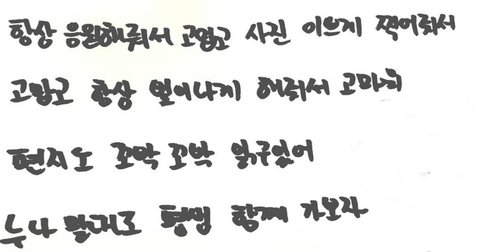 항상 응원해줘서 고맙고 사진 이쁘게 찍어줘서
고맙고 항상 일어나게 해줘서 고마워
편지도 꼬박 꼬박 읽구있어
누나 말대로 평생 함께 가보자